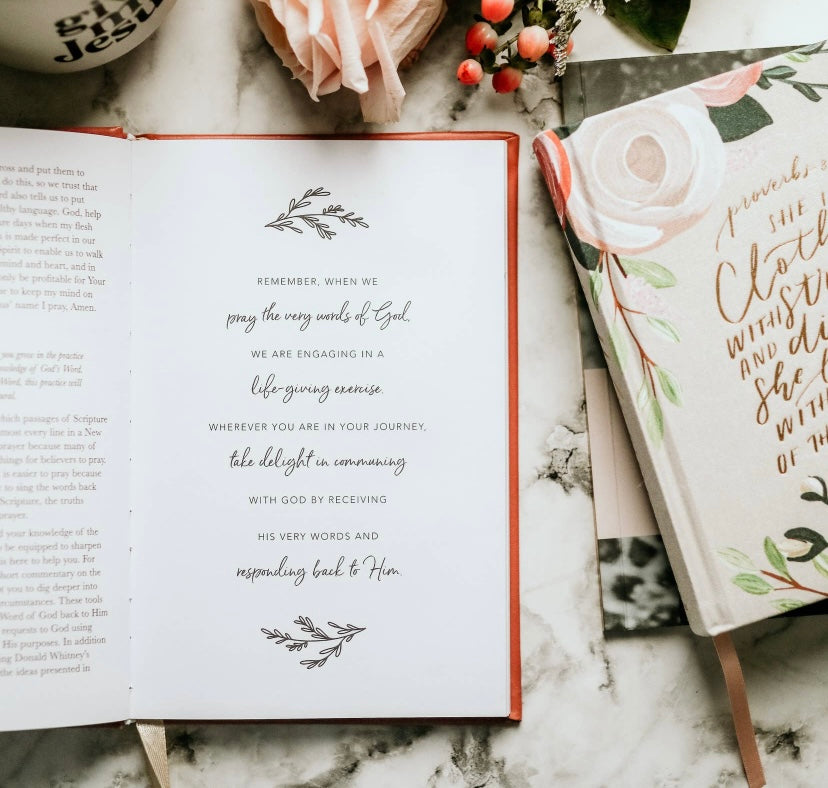 giv
me
Jesus
ross and put them to
do this, so we trust that
rd also tells us to put
lthy language. God, help
are days when my flesh
is made perfect in our
Spirit to enable us to walk
mind and heart, and in
only be profitable for Your
se to keep my mind on
us' name I pray, Amen.
you grow in the practice
nowledge of God's Word.
Word, this practice will
ural.
hich passages of Scripture
most every line in a New
prayer because many of
things for believers to pray.
is easier to pray because
to sing the words back
Scripture, the truths
prayer.
d your knowledge of the
be equipped to sharpen
is here to help you. For
short commentary on the
t you to dig deeper into
rcumstances. These tools
Word of God back to Him
requests to God using
His purposes. In addition
ing Donald Whitney's
the ideas presented in
REMEMBER, WHEN WE
pray the very words of God,
WE ARE ENGAGING IN A
life-giving exercise.
WHEREVER YOU ARE IN YOUR JOURNEY,
take delight in communing
WITH GOD BY RECEIVING
HIS VERY WORDS AND
responding back to Him.
proverbs 3
SHE I
Cloth
WITH STR
AND di
She l
WITH
OF TH